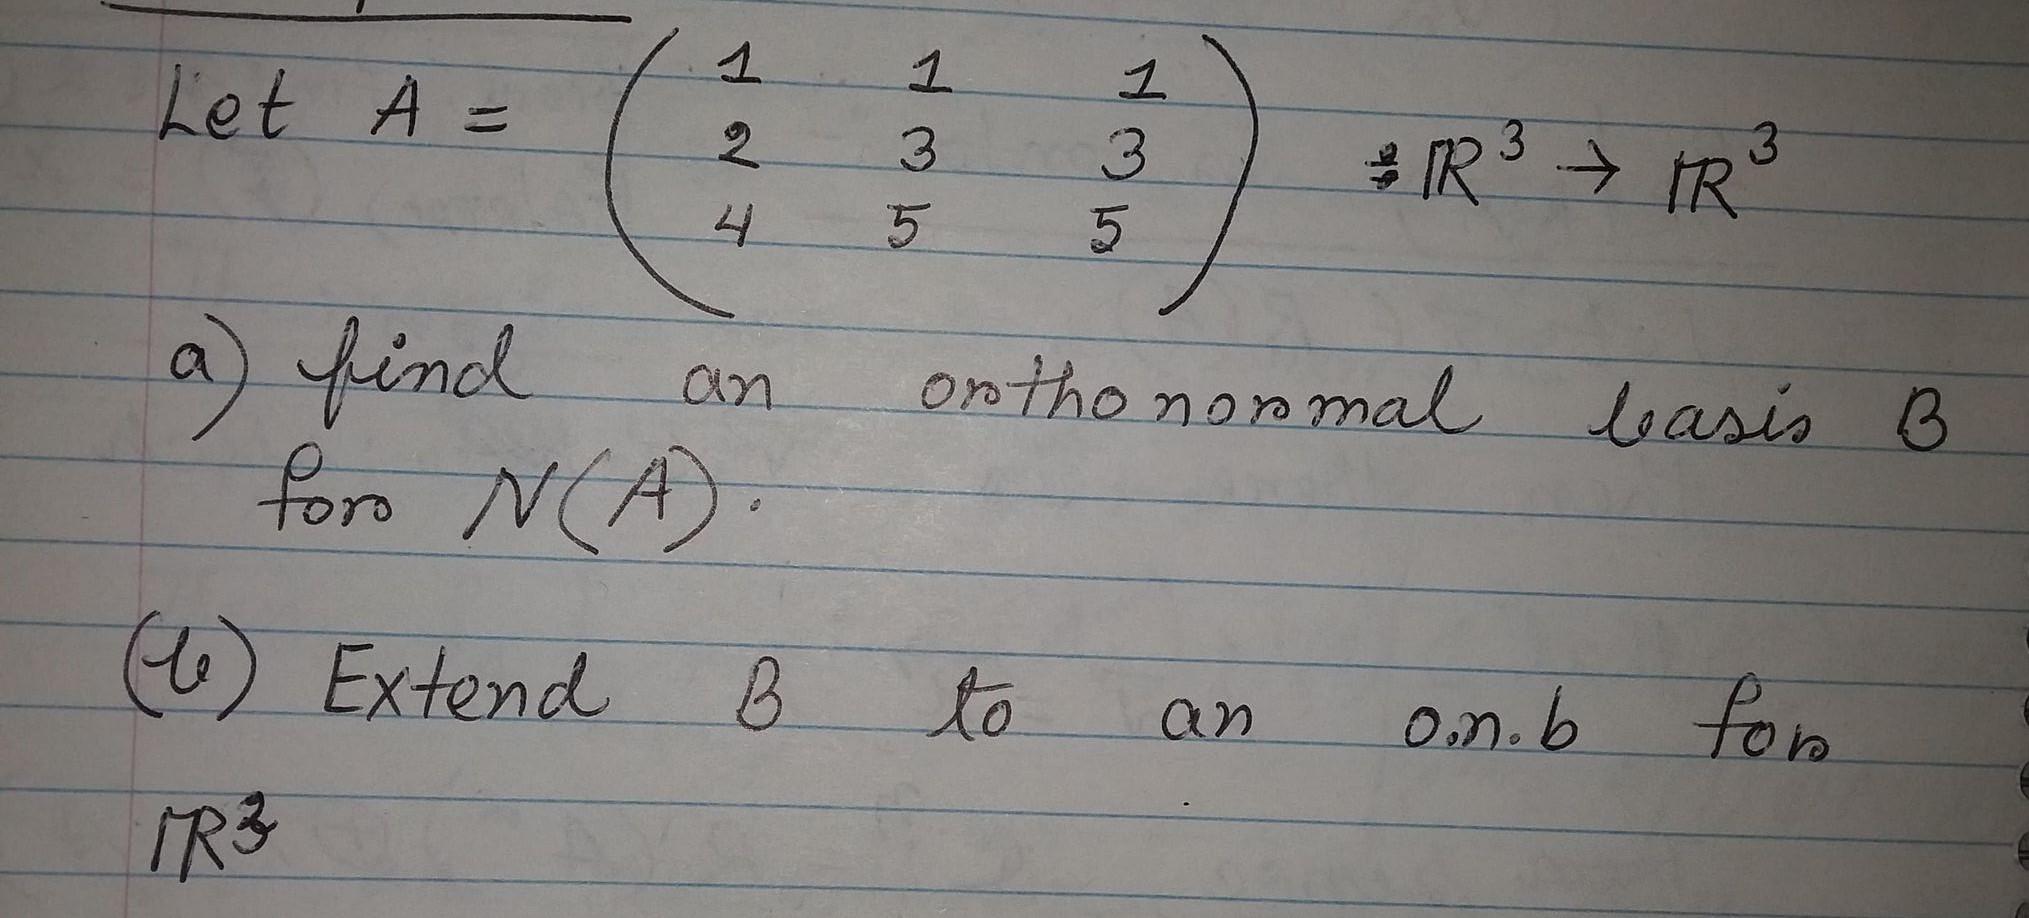 Let A = ( 1 1 1
2 3 3
4 5 5 ) : ℝ³ → ℝ³
a) find an orthonormal basis B
for N(A).
(b) Extend B to an o.n.b for
ℝ³